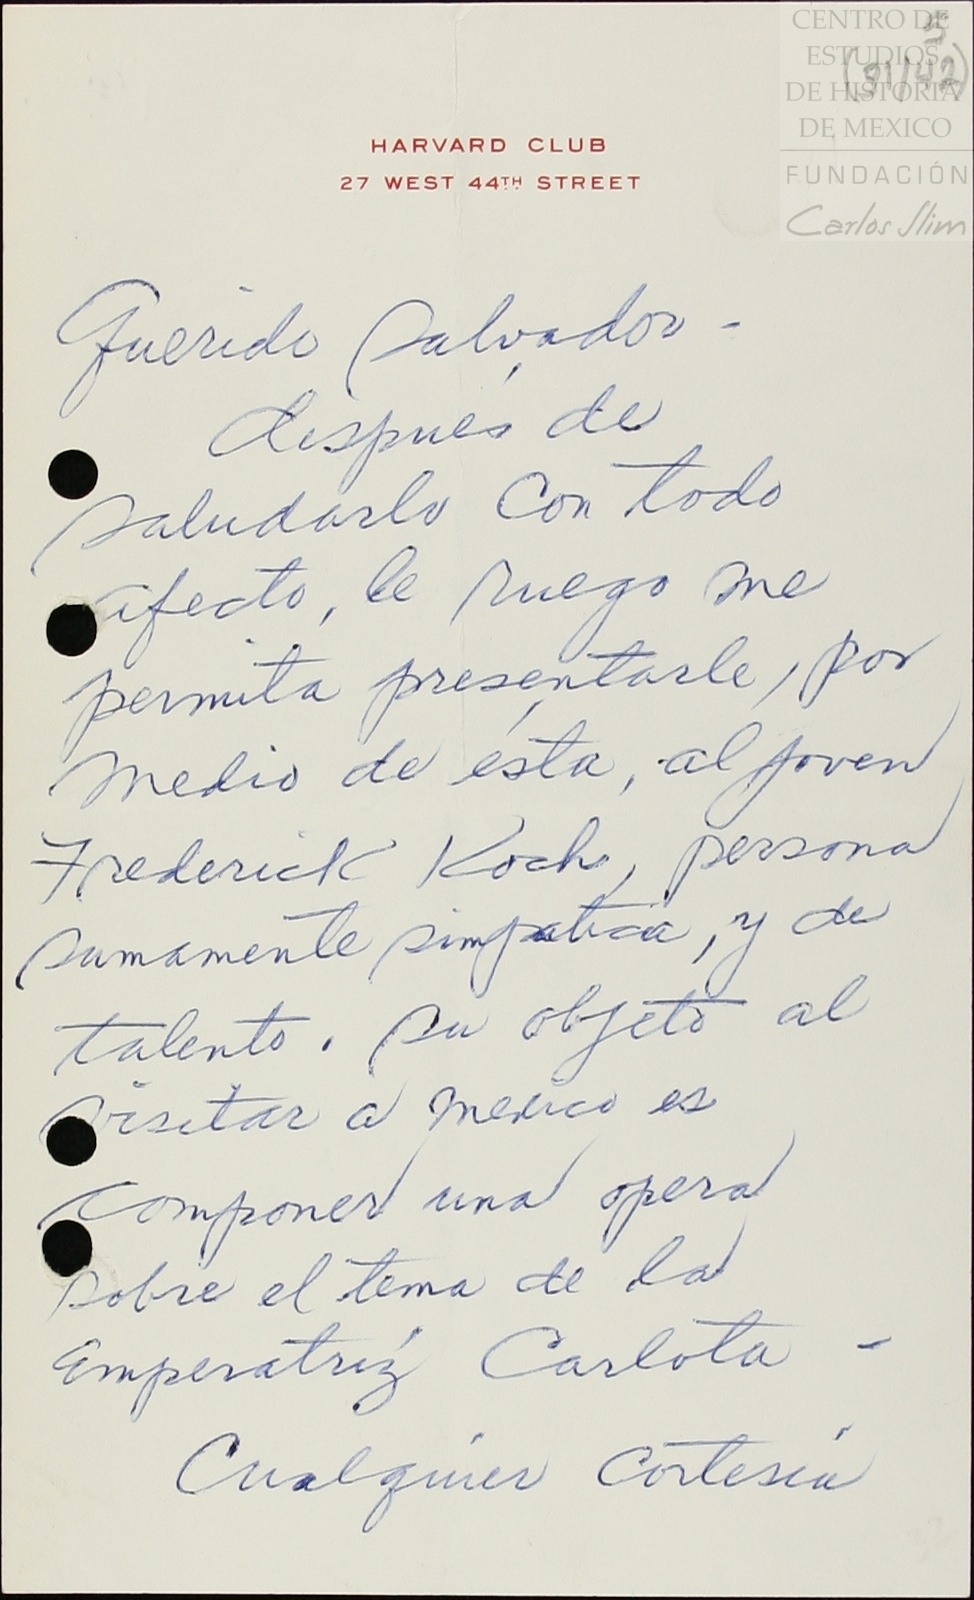 CENTRO DE
ESTUDIOS
DE HISTORIA
DE MEXICO
FUNDACIÓN
Carlos Slim
5
(91/42)
HARVARD CLUB
27 WEST 44TH STREET
Querido Salvador -
después de
saludarlo con todo
afecto, le ruego me
permita presentarle, por
medio de ésta, al joven
Frederick Koch, persona
sumamente simpatica, y de
talento. Su objeto al
visitar a Mexico es
componer una opera
sobre el tema de la
Emperatríz Carlota -
Cualquier cortesía